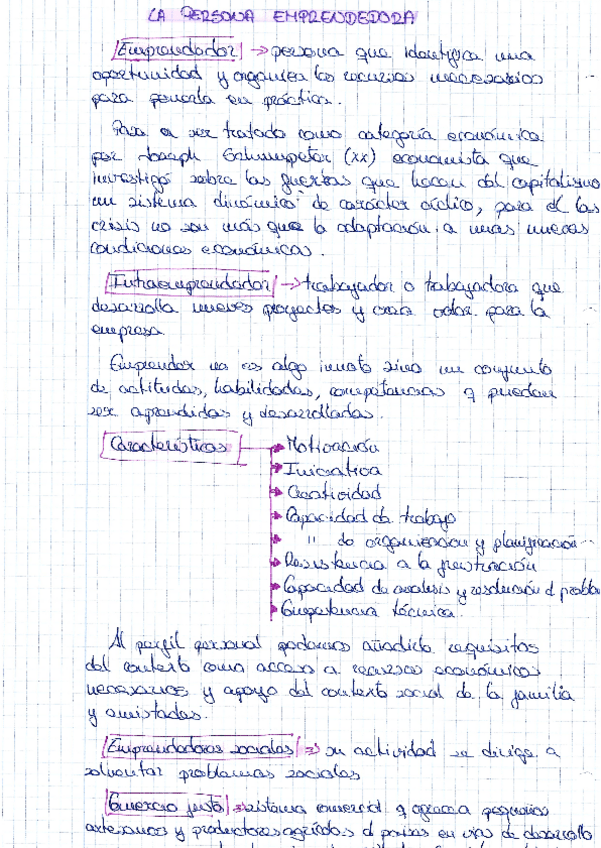 LA PERSONA EMPRENDEDORA
Emprendedor → persona que identifica una
oportunidad y organiza los recursos necesarios
para ponerla en práctica.
Pasa a ser tratado como categoría económica
por Joseph Schumpeter (XX) economista que
investigó sobre las fuerzas que hacen del capitalismo
un sistema dinámico de carácter cíclico, para él las
crisis no son más que la adaptación a unas nuevas
condiciones económicas.
Intraemprendedor → trabajador o trabajadora que
desarrolla nuevos proyectos y crea valor para la
empresa
Emprender no es algo innato sino un conjunto
de actitudes, habilidades, competencias q puedan
ser aprendidas y desarrolladas.
Características → Motivación
→ Iniciativa
→ Creatividad
→ Capacidad de trabajo
→ " de organización y planificación
→ Resistencia a la frustración
→ Capacidad de analisis y resolución d problem
→ Competencia técnica.
Al perfil personal podemos añadirle requisitos
del contexto como acceso a recursos económicos
necesarios y apoyo del contexto social de la familia
y amistades.
Emprendedores sociales ⇒ su actividad se dirige a
solventar problemas sociales
Comercio justo → sistema comercial q agrega pequeños
artesanos y productores agrícolas d países en vías de desarrollo